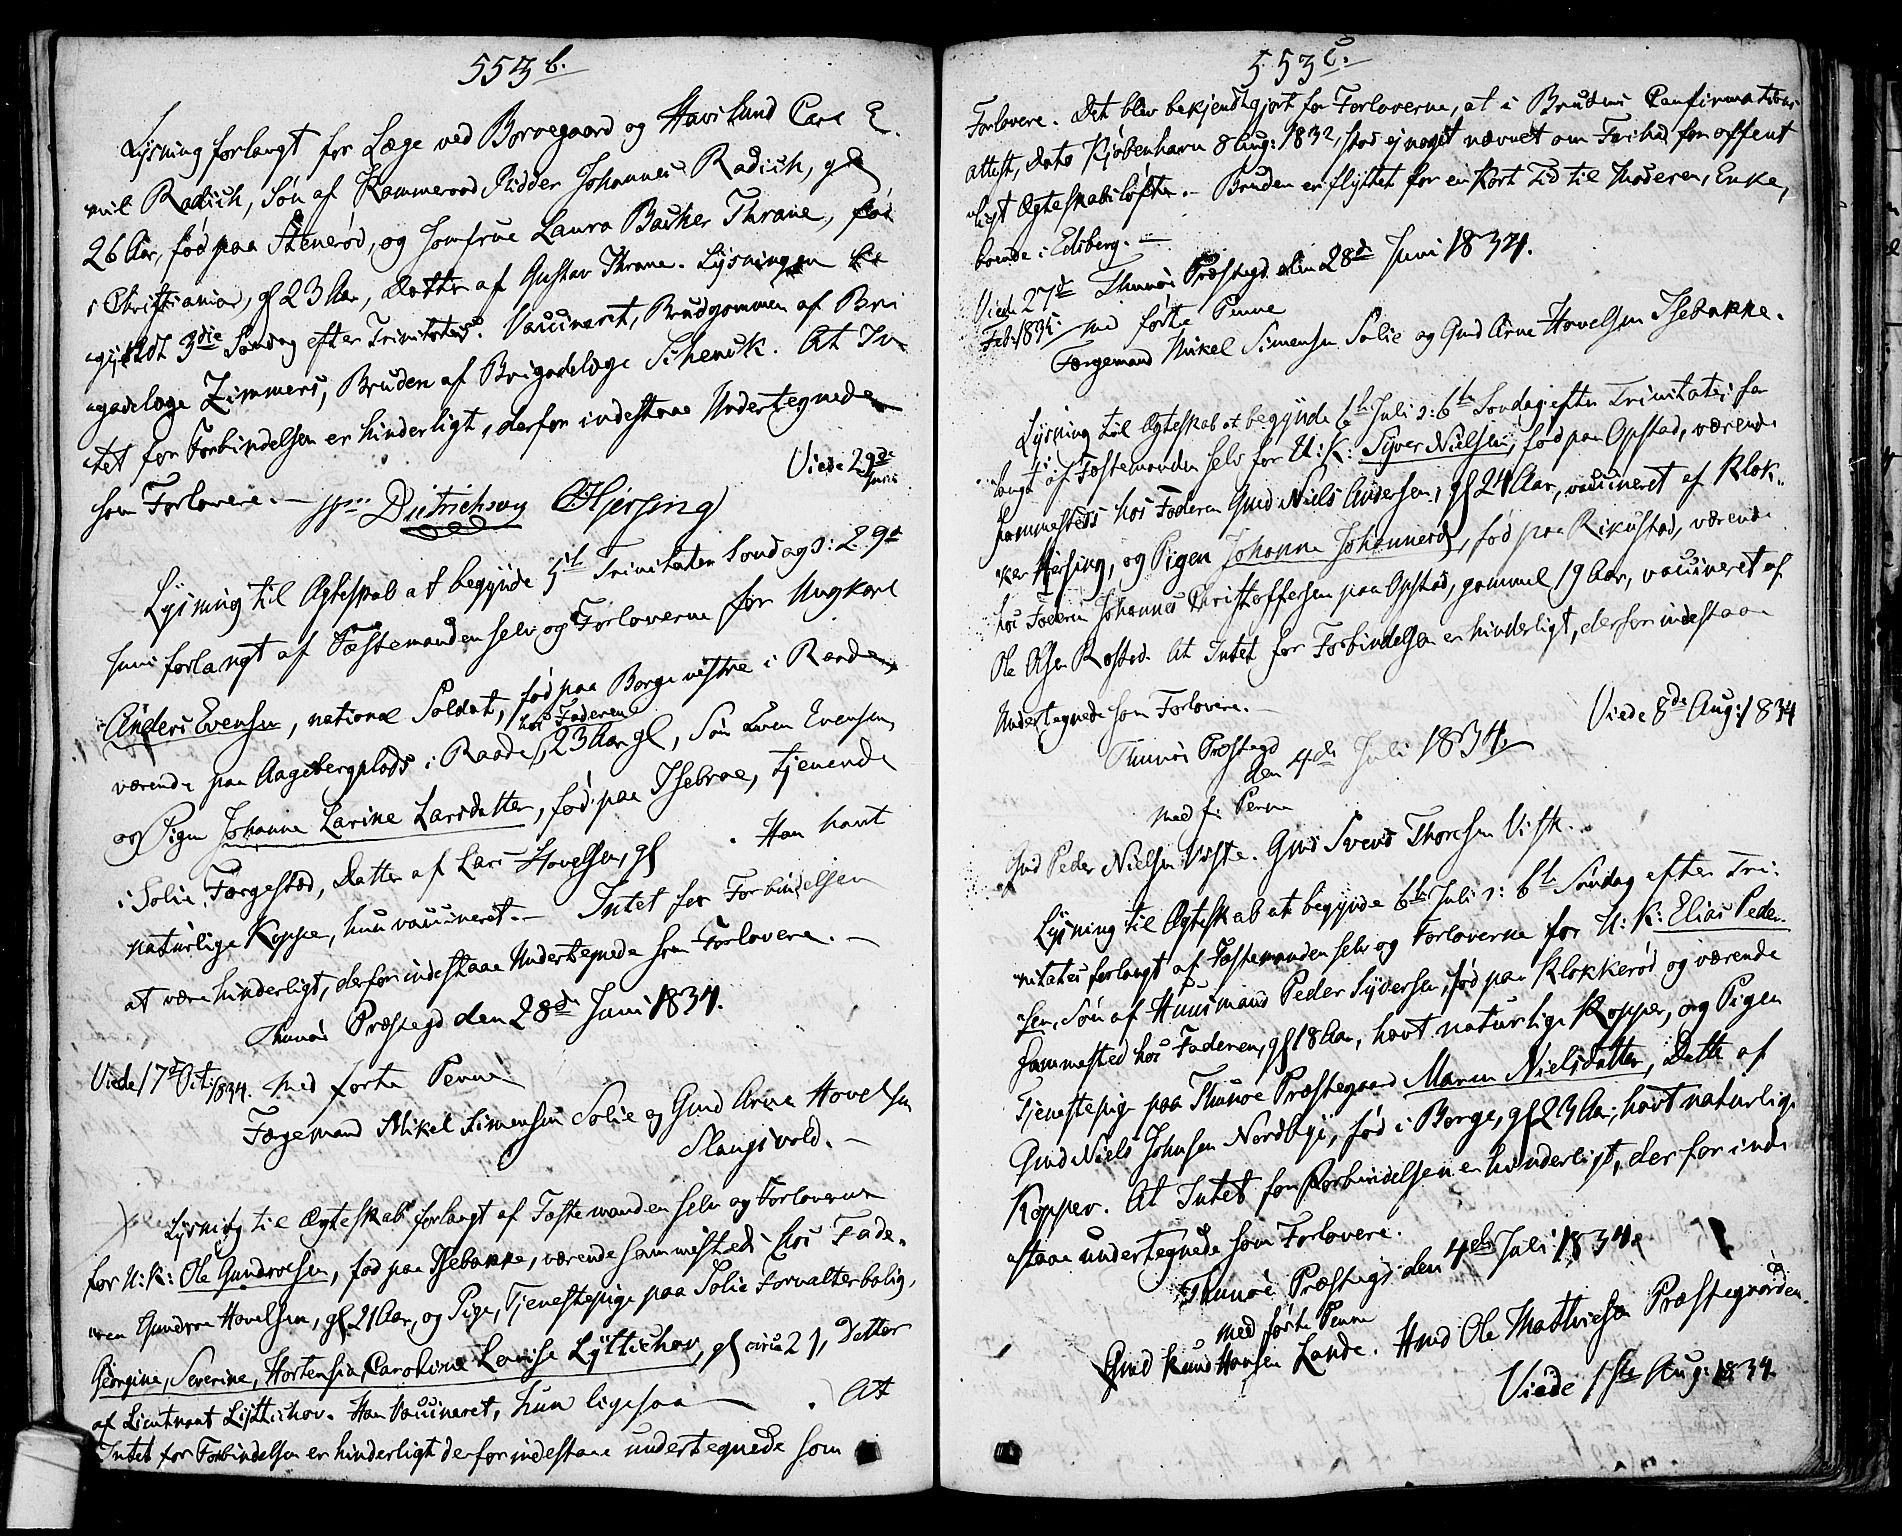 553 b.
Lysning forlangt for Læge ved Borregaard og Hauslund Carl E.
mil Radich, Søn af Kammerraad Ridder Johannes Radich, gl
26 Aar, fød paa Stenerød, og Jomfrue Laura Backer Thrane, fød
i Christiania, gl 23 Aar, Datter af Gustav Thrane. Lysningen be
gyndt 3die Søndag efter Trinitatis. Vaccineret, Brudgommen af Bri
gadelæge Zimmers, Bruden af Brigadelæge Schenck. At In
tet for Forbindelsen er hinderligt, derfor indestaae Undertegnede
som Forlovere. —
Viede 29de Juni
Ditrichson CHjersing
Lysning til Ægteskab at begynde 5te Trinitatis Søndag ɔ: 29de
Juni forlangt af Fæstemanden selv og Forloverne for Ungkarl
Anders Evensen, national Soldat, fød paa Borge vestre i Raade,
værende paa Aagebergplads i Raade, hos Faderen 23 Aar gl, Søn Even Evensen,
og Pigen Johanne Larine Larsdatter, fød paa Isebroe, tjenende
i Solie Færgestad, Datter af Lars Hovelsen, gl . Han havt
naturlige Kopper, hun vaccineret. — Intet for Forbindelsen
at være hinderligt, derfor indestaae Undertegnede som Forlovere. —
Thunøe Præstegd den 28de Juni 1834.
Viede 17de Oct: 1834. med førte Penne
Færgemand Mikel Simensen Solie og Gmd Arne Hovelsen
Slangsvold. —
Lysning til Ægteskab forlangt af Fæstemanden selv og Forloverne
for U: K: Ole Gundersen, fød paa Isebakke, værende sammesteds hos Fade-
ren Gunder Hovelsen, gl 21 Aar, og Pige, Tjenestepige paa Solie Forvalterbolig,
Georgine, Severine, Hortensia, Caroline Lovise Lyttichov, gl circa 21, Datter
af Lieutnant Lyttichov. Han vaccineret, hun ligesaa — . At
Intet for Forbindelsen er hinderligt derfor indestaae undertegnede som
553 c.
Forlovere. Det blev bekjendtgjort for Forloverne, at i Brudens Confirmations
attest, dato Kjøbenhavn 8 Aug: 1832, stod ej noget nævnet om Frihed for offent
ligt Ægteskabsløfte. — Bruden er flyttet for en kort Tid til Moderen, Enke,
boende i Edsberg. —
Thunøe Præstegd den 28de Juni 1834.
Viede 27de Feb: 1835. med førte Penne
Færgemand Mikel Simensen Solie og Gmd Arne Hovelsen Isebakke.
Lysning til Ægteskab at begynde 6te Juli ɔ: 6te Søndag efter Trinitatis for
langt af Fæstemanden selv for U: K: Syver Nielsen, fød paa Opstad, værende
sammesteds hos Faderen Gmd Niels Andersen, gl 24 Aar, vaccineret af Klok-
ker Hjersing, og Pigen Johanne Johannesd, fød paa Rikustad, værende
hos Faderen Johannes Christoffersen paa Opstad, gammel 19 Aar, vaccineret af
Ole Olsen Rostad. At Intet for Forbindelsen er hinderligt, derfor indestaae
Undertegnede som Forlovere. —
Viede 8de Aug: 1834
Thunøe Præstegd
den 4de Juli 1834.
med f: Penne
Gmd Peder Nielsen Viste. Gmd Svend Thoresen Visth.
Lysning til Ægteskab at begynde 6te Juli ɔ: 6te Søndag efter Tri-
nitatis forlangt af Fæstemanden selv og Forloverne for U: K: Elias Peder-
sen, Søn af Huusmand Peder Syversen, fød paa Klokkerød og værende
sammested hos Faderen, gl 18 Aar, havt naturlige Kopper, og Pigen
Tjenestepige paa Thunøe Præstegaard Maren Nielsdatter, Datter af
Gmd Niels Johnsen Nordbye, fød i Borge, gl 23 Aar, havt naturlige
Kopper. At Intet for Forbindelsen er hinderligt, derfor inde
staae undertegnede som Forlovere.
Thunøe Præstegd den 4de Juli 1834.
med førte Penne
Gmd Knud Hansen Lande. Hmd Ole Mathiesen Præstegrøden.
Viede 1ste Aug: 1834.